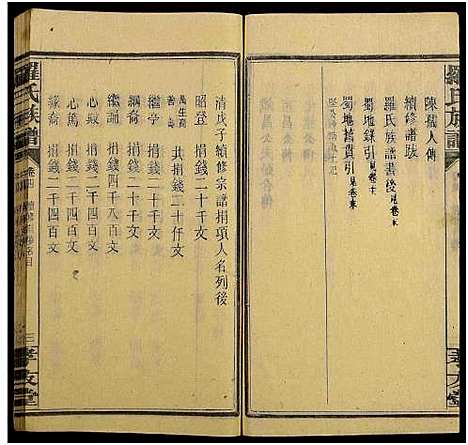 羅氏族譜
陳孺人傳
續修譜跋
羅氏族譜書後 見卷末
蜀地錄引 見卷末
蜀地舊貫引 見卷末
清戊子續修宗譜捐項人名列後
昭登 捐錢二十千文
萬生齋
共捐錢二十仟文
繼學 捐錢二千四百文
繼誦 捐錢四千八百文
綱裔 捐錢二千四百文
心毅 捐錢二千四百文
心萬 捐錢二千四百文
緣裔 捐錢二千四百文
羅氏族譜
卷首
三
孝友堂